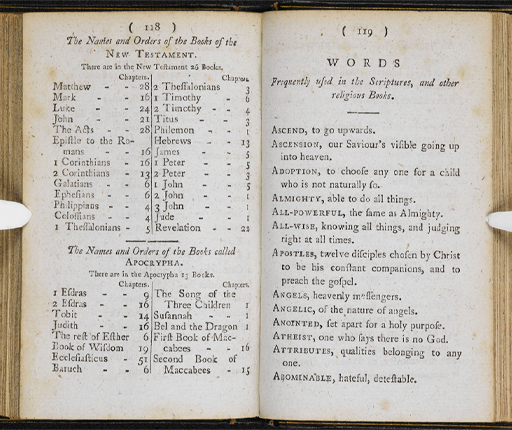 ( 118 )
The Names and Orders of the Books of the
NEW TESTAMENT.
There are in the New Teſtament 26 Books.
Chapters.
Matthew - - 28
Mark - - 16
Luke - - 24
John - - 21
The Acts - - 28
Epiſtle to the Ro-
mans - - 16
1 Corinthians - 16
2 Corinthians - 13
Galatians - - 6
Epheſians - - 6
Philippians - - 4
Coloſſians - - 4
1 Theſſalonians - 5
Chapters.
2 Theſſalonians 3
1 Timothy - 6
2 Timothy - - 4
Titus - - 3
Philemon - - 1
Hebrews - - 13
James - - 5
1 Peter - - 5
2 Peter - - 3
1 John - - 5
2 John - - 1
3 John - - 1
Jude - - 1
Revelation - - 22
The Names and Orders of the Books called
APOCRYPHA.
There are in the Apocrypha 13 Books.
Chapters.
1 Eſdras - - 9
2 Eſdras - - 16
Tobit - - 14
Judith - - 16
The reſt of Eſther 6
Book of Wiſdom 19
Eccleſiaſticus - 51
Baruch - - 6
Chapters.
The Song of the
Three Children 1
Suſannah - - 1
Bel and the Dragon 1
Firſt Book of Mac-
cabees - - 16
Second Book of
Maccabees - 15
( 119 )
WORDS
Frequently uſed in the Scriptures, and other
religious Books.
ASCEND, to go upwards.
ASCENSION, our Saviour's viſible going up
into heaven.
ADOPTION, to chooſe any one for a child
who is not naturally ſo.
ALMIGHTY, able to do all things.
ALL-POWERFUL, the ſame as Almighty.
ALL-WISE, knowing all things, and judging
right at all times.
APOSTLES, twelve diſciples choſen by Chriſt
to be his conſtant companions, and to
preach the goſpel.
ANGELS, heavenly meſſengers.
ANGELIC, of the nature of angels.
ANOINTED, ſet apart for a holy purpoſe.
ATHEIST, one who ſays there is no God.
ATTRIBUTES, qualities belonging to any
one.
ABOMINABLE, hateful, deteſtable.